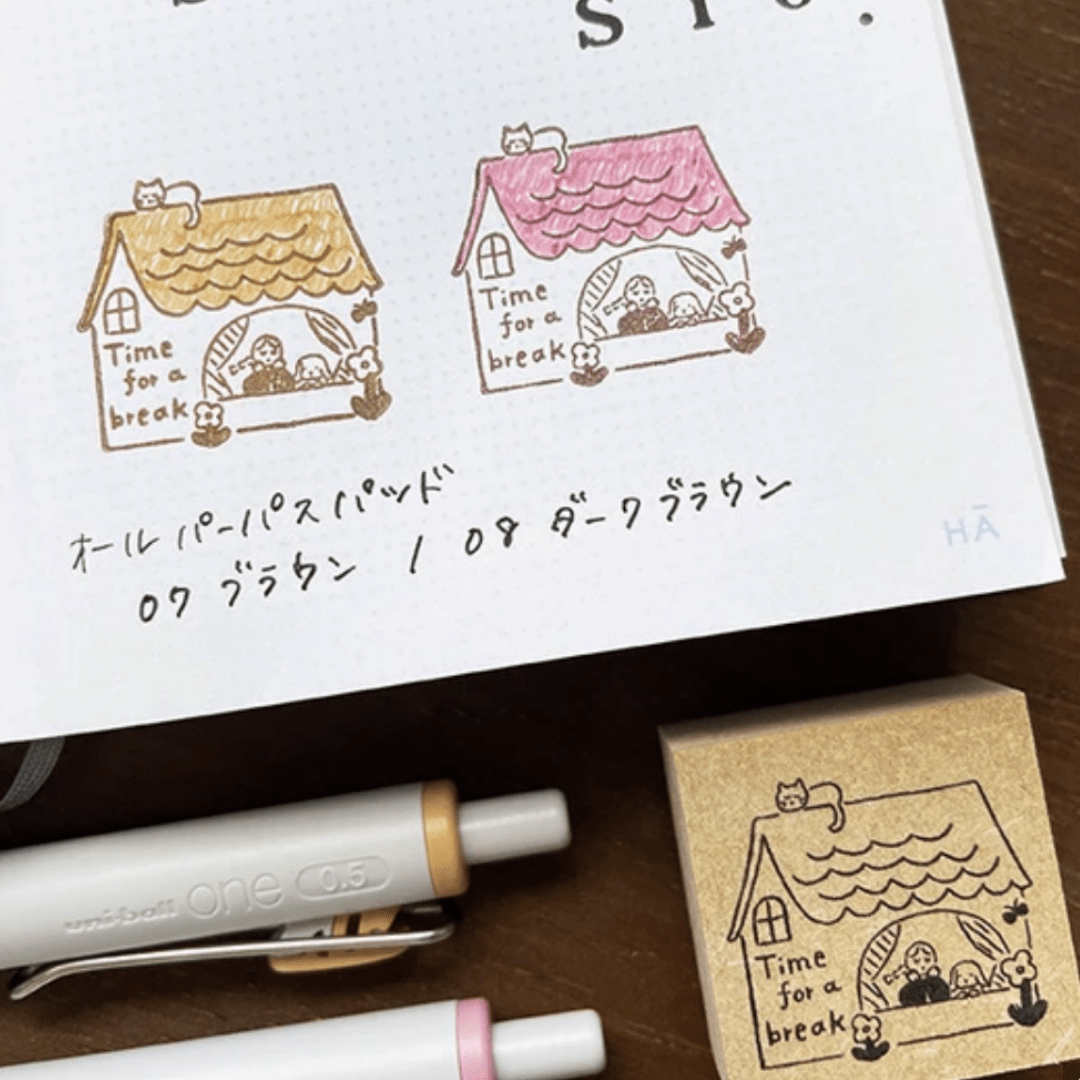 Time
for a
break
Time
for a
break
オールパーパスパッド
07 ブラウン / 08 ダークブラウン
HĀ
uni-ball one 0.5
Time
for a
break